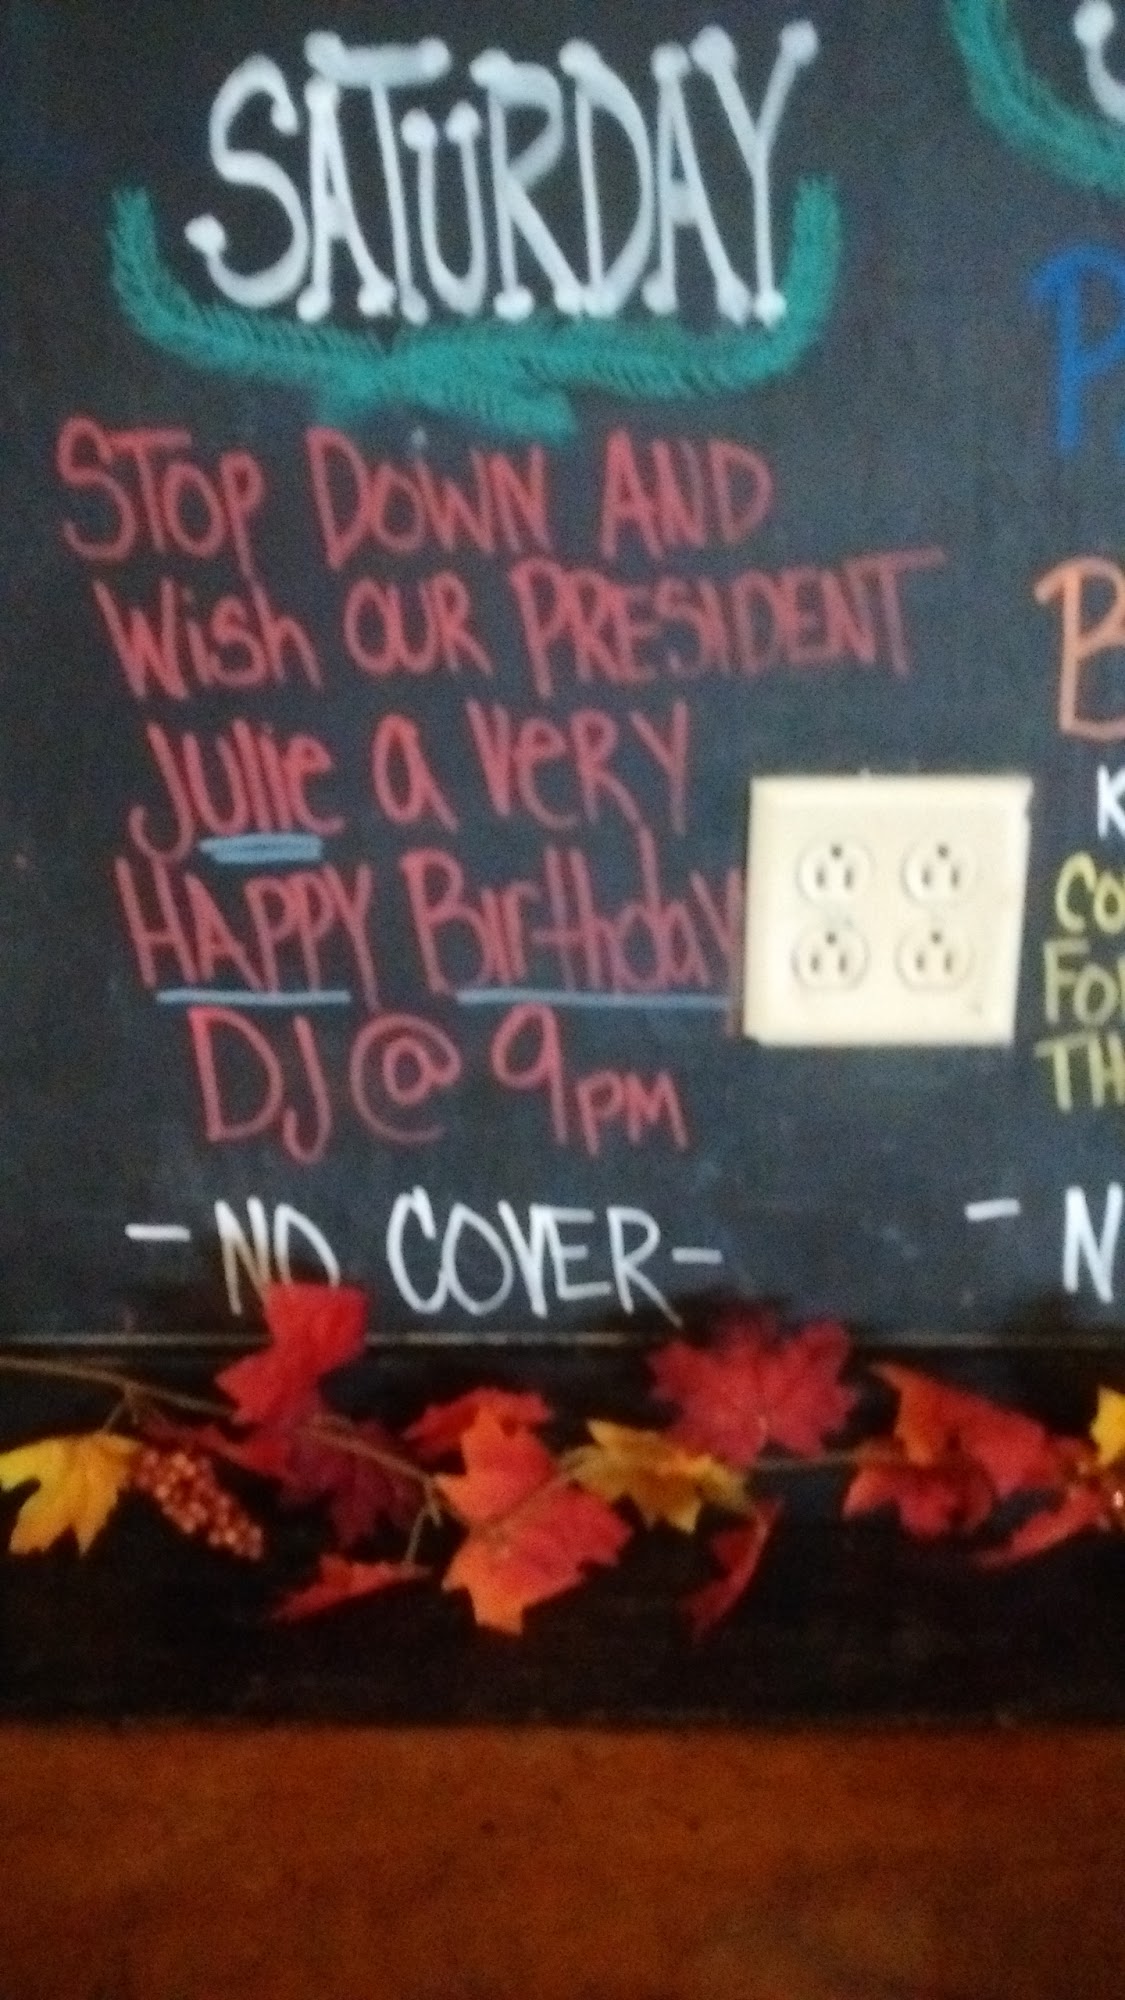 SATURDAY
STOP DOWN AND
Wish OUR PRESIDENT
Julie a VeRY
HAPPY Birthday
DJ @ 9PM
- NO COVER -
P
B
K
CO
FO
TH
- N